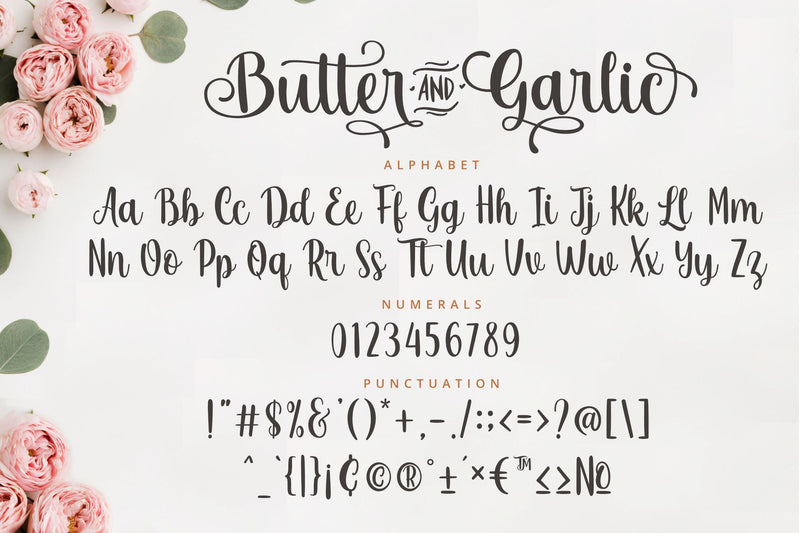 Butter AND Garlic
ALPHABET
Aa Bb Cc Dd Ee Ff Gg Hh Ii Jj Kk Ll Mm
Nn Oo Pp Qq Rr Ss Tt Uu Vv Ww Xx Yy Zz
NUMERALS
0123456789
PUNCTUATION
!"#$%&'()*+,-./:;<=>?@[\]
^_`{|}¡¢©®°±´×€™≤≥№